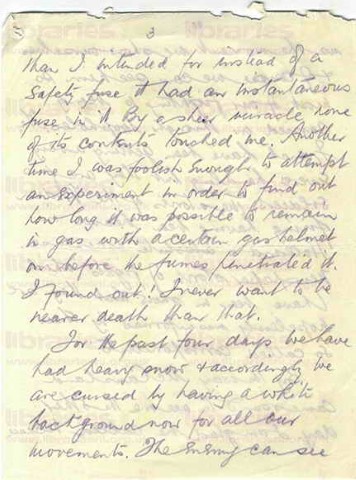 3
than I intended for instead of a
safety fuse it had an instantaneous
fuse in it. By a sheer miracle none
of its contents touched me. Another
time I was foolish enough to attempt
an experiment in order to find out
how long it was possible to remain
in gas with a certain gas helmet
on before the fumes penetrated it.
I found out! I never want to be
nearer death than that.
For the past four days we have
had heavy snow & accordingly we
are cursed by having a white
background now for all our
movements. The enemy can see